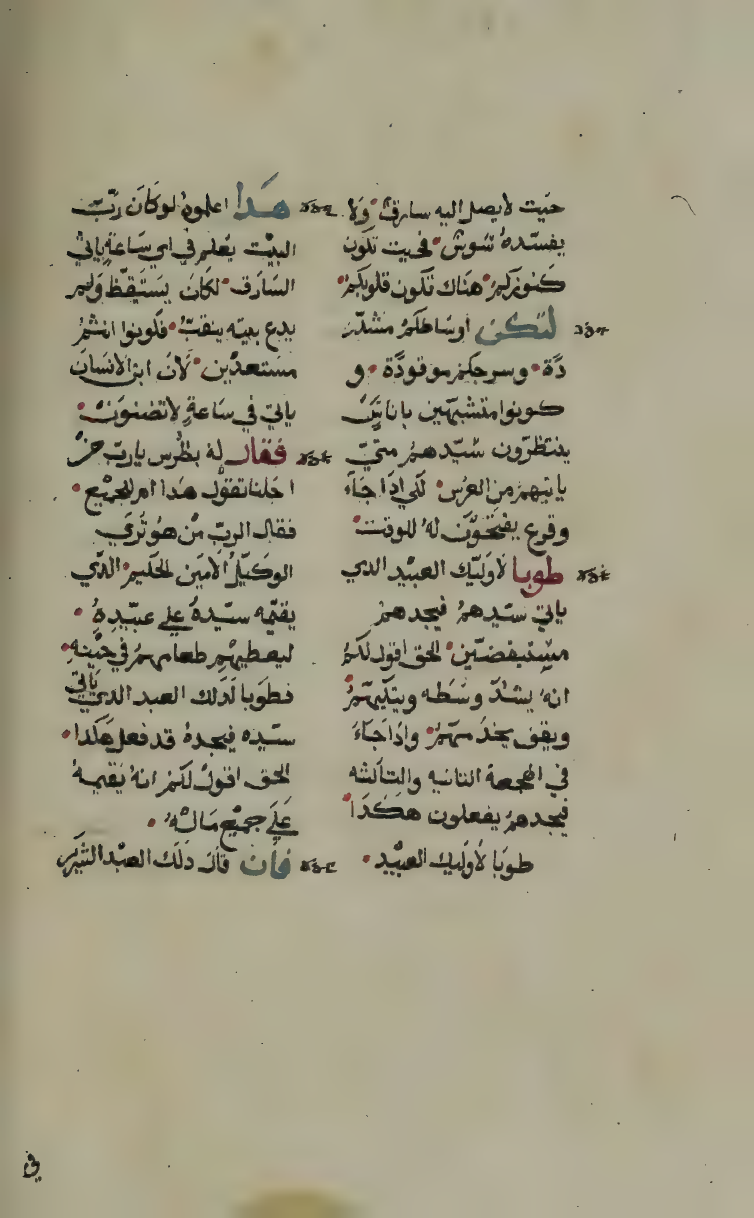 حيت لايصل اليه سارق ولا
يفسده سوس فحيت تكون
كنوزكم هناك تكون قلوبكم
لتكن اوساطكم مشدد
دة وسرجكم موقودة و
كونوا متشبهين باناس
ينتظرون سيدهم متى
ياتيهم من العرس لكي اذا جاء
وقرع يفتحون له للوقت
طوبا لاوليك العبيد الدي
ياتي سيدهم فيجدهم
مستيقضين الحق اقول لكم
انه يشد وسطه ويتكيهم
ويقف يخدمهم واذا جاء
في الهجعة التانيه والتالته
فيجدهم يفعلون هكذا
طوبا لاوليك العبيد
هدا اعلموه لو كان رب
البيت يعلم في اي ساعة ياتي
السارق لكان يستيقظ ولم
يدع بيته ينقب فكونوا انتم
مستعدين لان ابن الانسان
ياتي في ساعة لاتضنون
فقال له بطرس يارب من
اجلنا تقول هدا ام للجميع
فقال الرب من هو تري
الوكيل الامين الحكيم الدي
يقيمه سيده علي عبيده
ليعطيهم طعامهم في حينه
فطوبا لدلك العبد الدي ياتي
سيده فيجده قد فعل هكدا
الحق اقول لكم انه يقيمه
علي جميع ماله
فان قال دلك العبد الشرير
في